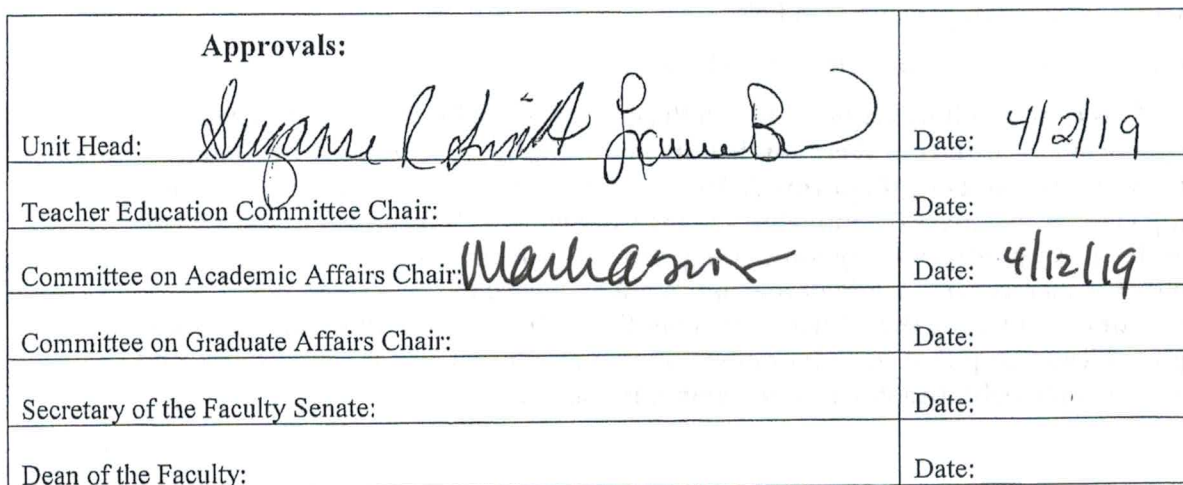 Approvals:
Unit Head: Suzanne R Date: 4/2/19
Teacher Education Committee Chair: Date:
Committee on Academic Affairs Chair: Date: 4/12/19
Committee on Graduate Affairs Chair: Date:
Secretary of the Faculty Senate: Date:
Dean of the Faculty: Date: